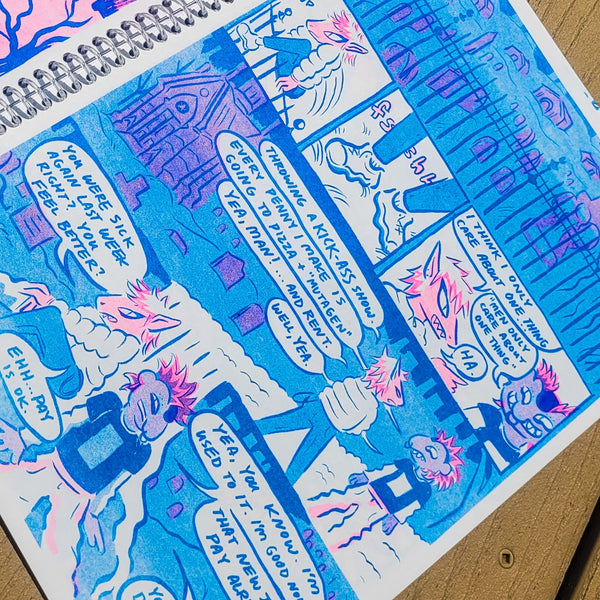 I THINK I ONLY
CARE ABOUT ONE THING
"MEN ONLY
CARE ABOUT
ONE THING"
HA.
THROWING A KICK-ASS SHOW.
EVERY PENNY I MAKE IS
GOING TO PIZZA + "MUTAGEN"
YEA, MAN!.. AND RENT.
WELL, YEA
YOU WERE SICK
AGAIN LAST WEEK
RIGHT? YOU
FEEL BETTER?
YEA, YOU KNOW. I'M
USED TO IT. I'M GOOD
THAT NEW
PAY
EHH... PAY
IS OK.